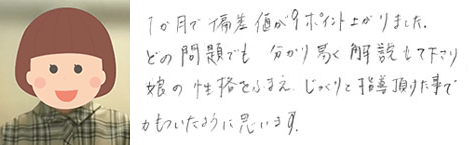 1か月で偏差値が9ポイント上がりました。
どの問題でも 分かり易く解説して下さり
娘の性格をふまえ、じっくりと指導頂けた事で
力もついたように思います。